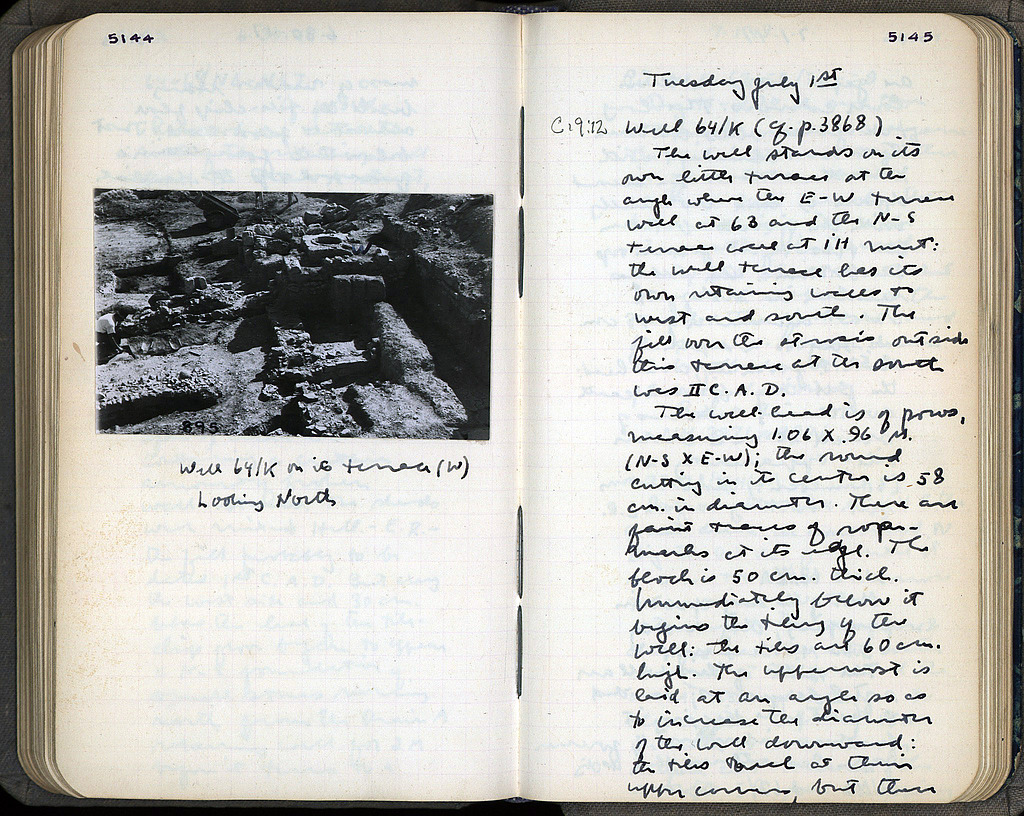 5144
895
Well 64/K on its terrace (W)
Looking North
5145
Tuesday July 1st
C:9:12 Well 64/K (cf. p. 3868)
The well stands on its
own little terrace at the
angle where the E-W terrace
wall at 63 and the N-S
terrace wall at 1H meet:
the well terrace has its
own retaining walls to
west and south. The
fill over the strosis outside
this terrace at the south
was II C. A. D.
The well-head is of poros,
measuring 1.06 X .96 m.
(N-S X E-W); the round
cutting in its center is 58
cm. in diameter. There are
faint traces of rope-
marks at its edge. The
block is 50 cm. thick.
Immediately below it
begins the tiling of the
well: the tiles are 60 cm.
high. The uppermost is
laid at an angle so as
to increase the diameter
of the well downward:
the tiles at their
upper corners, but these